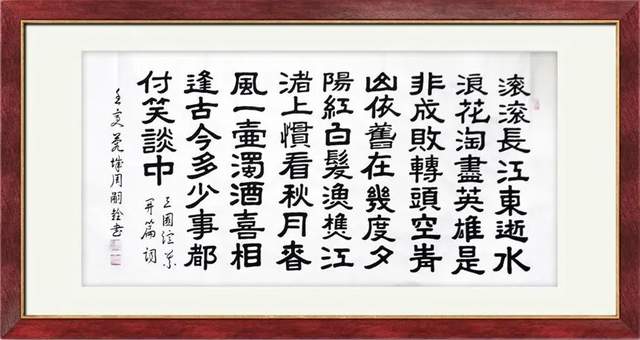 滚滚長江東逝水
浪花淘盡英雄是
非成敗轉頭空青
山依舊在幾度夕
陽紅白髮漁樵江
渚上慣看秋月春
風一壺濁酒喜相
逢古今多少事都
付笑談中
三國
开篇词
城周嗣